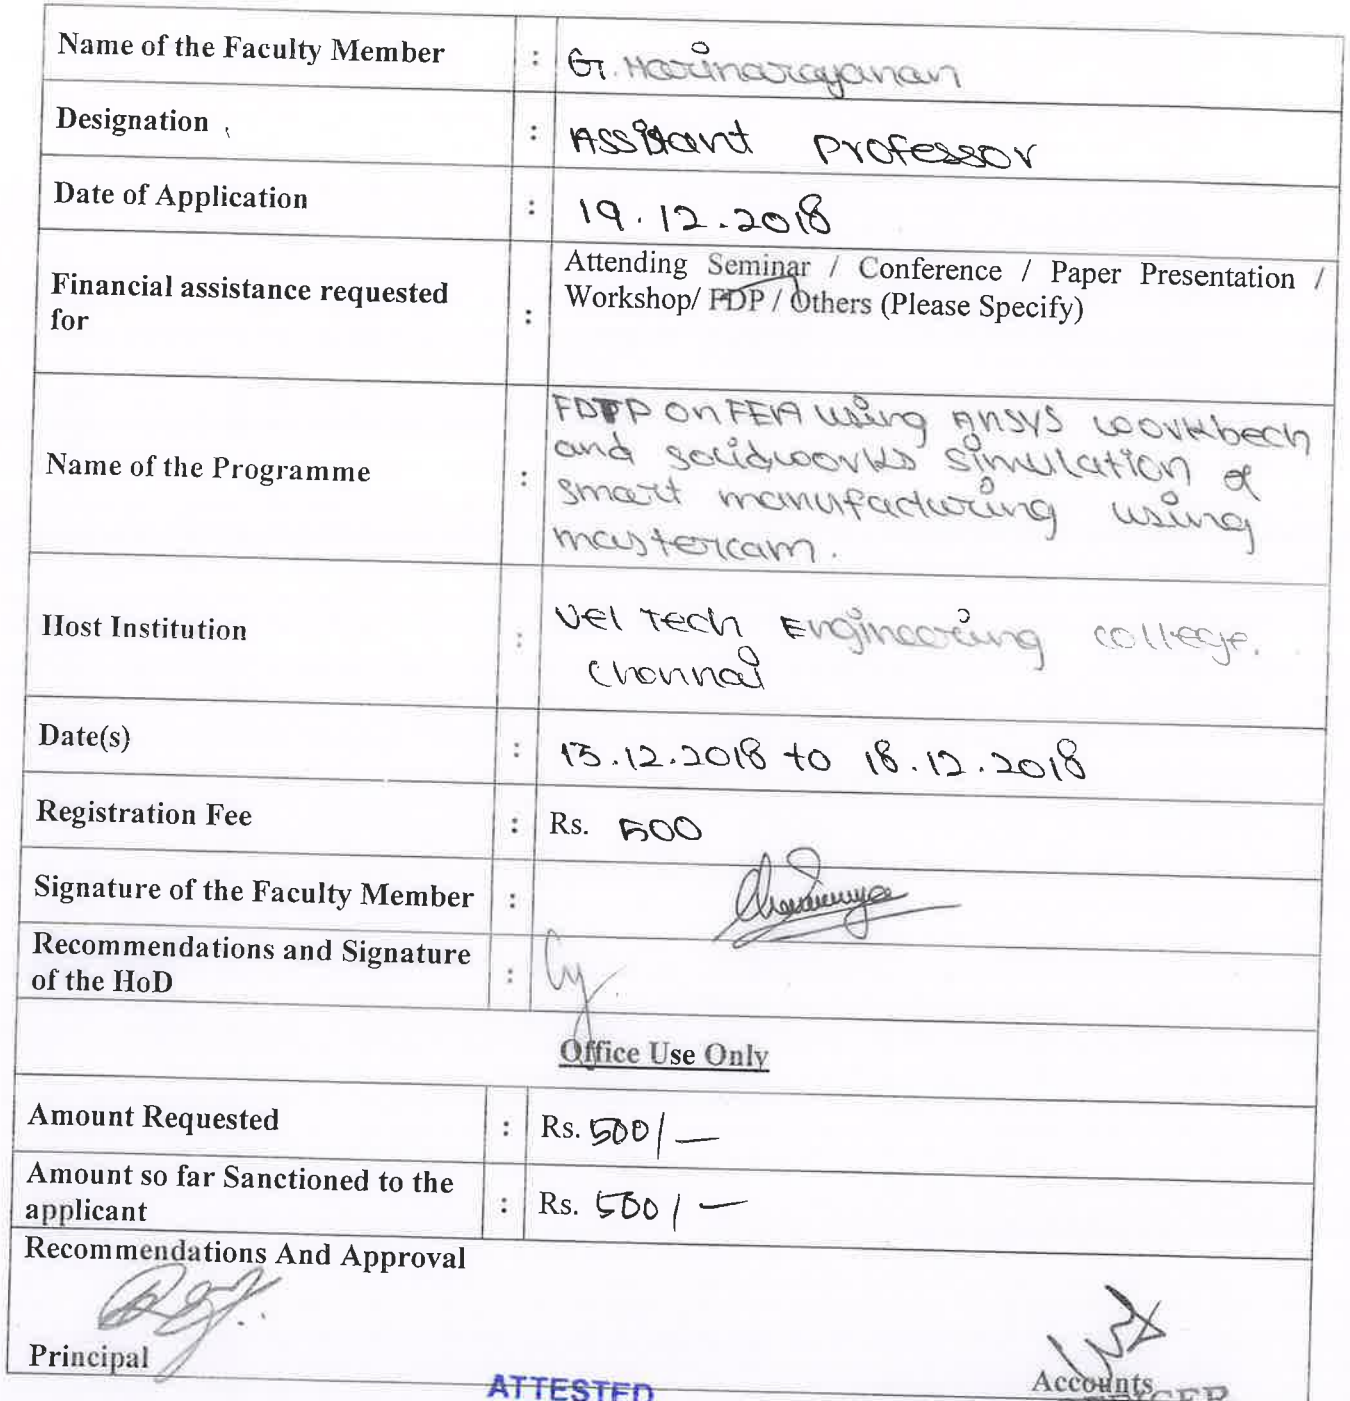 Name of the Faculty Member : G. Harinarayanan
Designation : Assitant Professor
Date of Application : 19.12.2018
Financial assistance requested for : Attending Seminar / Conference / Paper Presentation /
Workshop/ FDP / Others (Please Specify)
Name of the Programme : FDTP on FEA using ANSYS workbech
and solidworks simulation &
smart manufacturing using
mastercam.
Host Institution : Vel Tech Engineering college.
Chennai
Date(s) : 13.12.2018 to 18.12.2018
Registration Fee : Rs. 500
Signature of the Faculty Member :
Recommendations and Signature
of the HoD :
Office Use Only
Amount Requested : Rs. 500/-
Amount so far Sanctioned to the
applicant : Rs. 500/-
Recommendations And Approval
Principal
Accounts
ATTESTED